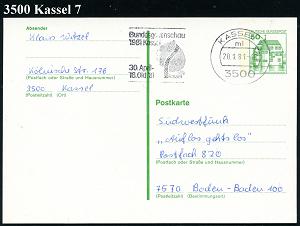 3500 Kassel 7
Absender
Klaus Witzel
Kölnische Str. 176
(Postfach oder Straße und Hausnummer)
3500 Kassel
(Postleitzahl) (Ort)
Bundesgartenschau
1981 Kassel
30. April-
18. Okt. 81
KASSEL
ml
20.1.81
3500
DEUTSCHE BUNDESPOST
Postkarte
Südwestfunk
"Auf los gehts los"
Postfach 820
(Postfach oder Straße und Hausnummer)
7570 Baden-Baden 100
(Postleitzahl) (Bestimmungsort)